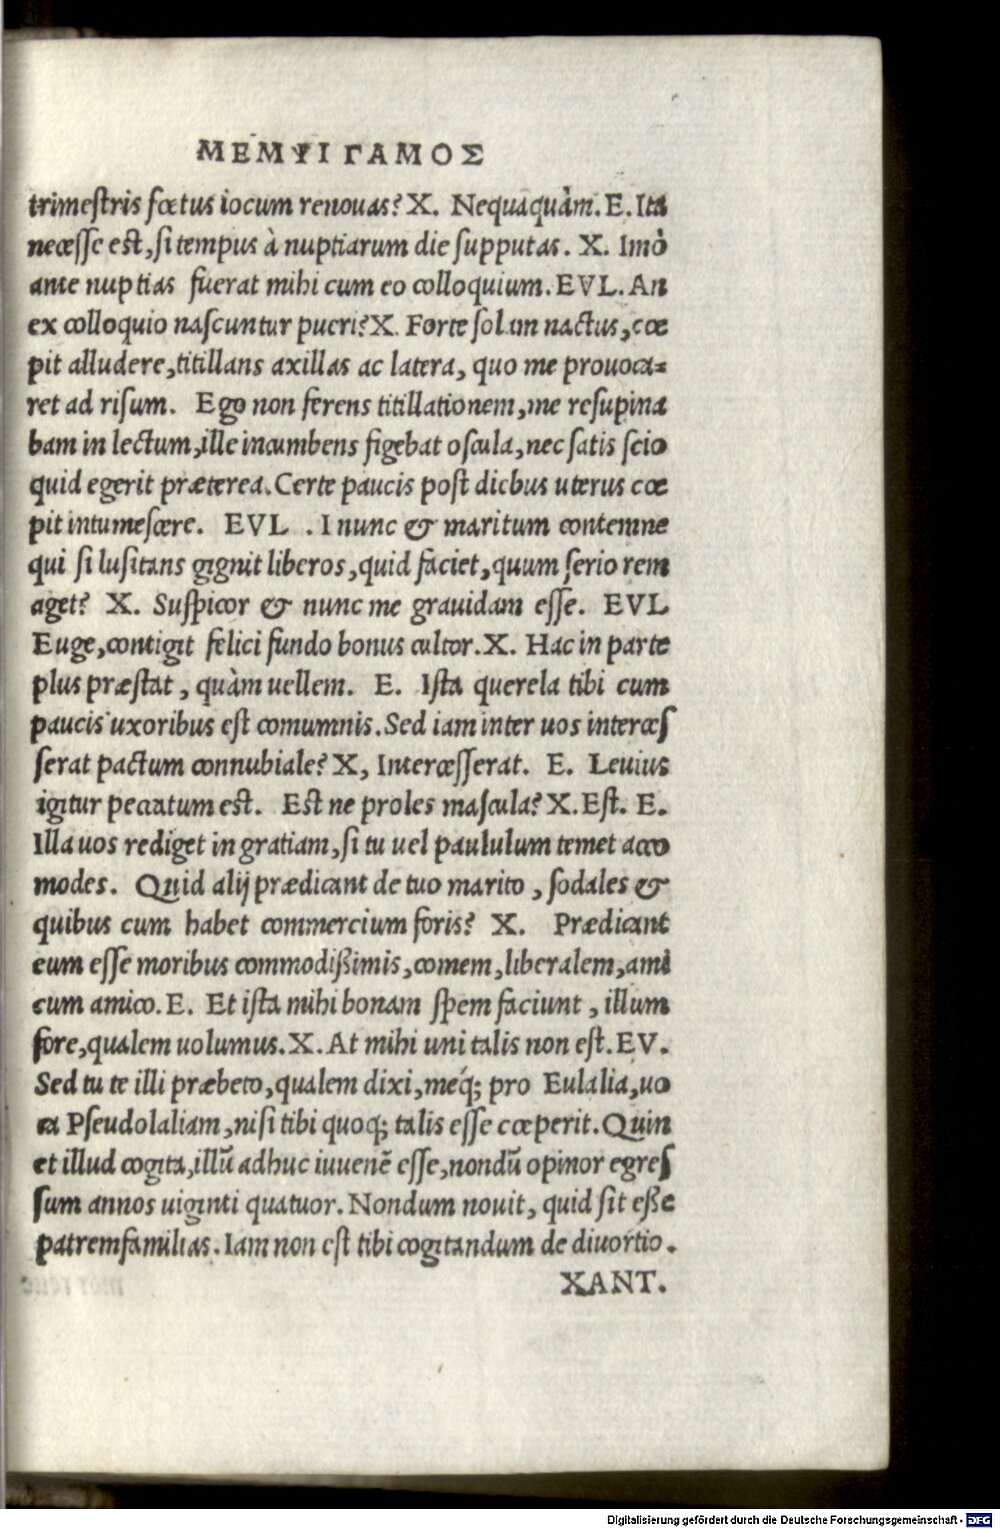 ΜΕΜΨΙΓΑΜΟΣ
trimestris fœtus iocum renouas? X. Nequaquàm. E. Ita
necesse est, si tempus à nuptiarum die supputas. X. Imò
ante nuptias fuerat mihi cum eo colloquium. EVL. An
ex colloquio nascuntur pueri? X. Forte solam nactus, cœ
pit alludere, titillans axillas ac latera, quo me prouoca=
ret ad risum. Ego non ferens titillationem, me resupina
bam in lectum, ille incumbens figebat oscula, nec satis scio
quid egerit præterea. Certe paucis post diebus uterus cœ
pit intumescere. EVL . I nunc & maritum contemne
qui si lusitans gignit liberos, quid faciet, quum serio rem
aget? X. Suspicor & nunc me grauidam esse. EVL
Euge, contigit felici fundo bonus cultor. X. Hac in parte
plus præstat, quàm uellem. E. Ista querela tibi cum
paucis uxoribus est comumnis. Sed iam inter uos interces
serat pactum connubiale? X, Intercesserat. E. Leuius
igitur peccatum est. Est ne proles mascula? X. Est. E.
Illa uos rediget in gratiam, si tu uel paululum temet acco
modes. Quid alij prædicant de tuo marito, sodales &
quibus cum habet commercium foris? X. Prædicant
eum esse moribus commodißimis, comem, liberalem, ami
cum amico. E. Et ista mihi bonam spem faciunt, illum
fore, qualem uolumus. X. At mihi uni talis non est. EV.
Sed tu te illi præbeto, qualem dixi, meq́; pro Eulalia, uo
ca Pseudolaliam, nisi tibi quoq; talis esse cœperit. Quin
et illud cogita, illũ adhuc iuuenẽ esse, nondũ opinor egres
sum annos uiginti quatuor. Nondum nouit, quid sit eße
patremfamilias. Iam non est tibi cogitandum de diuortio.
XANT.
Digitalisierung gefördert durch die Deutsche Forschungsgemeinschaft - DFG